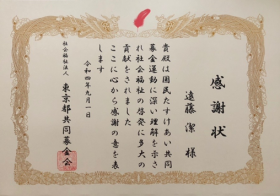 感謝状
遠藤 潔 様
貴殿は国民たすけあい共同
募金運動に深い理解を示さ
れ社会福祉の啓発に多大の
貢献をされました
ここに心から感謝の意を表
します
令和四年九月一日
社会福祉法人
東京都共同募金会